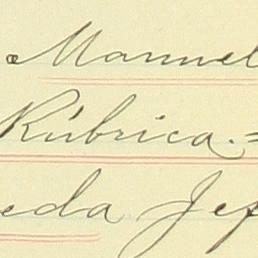 Manuel
Rúbrica.=
eda Jef